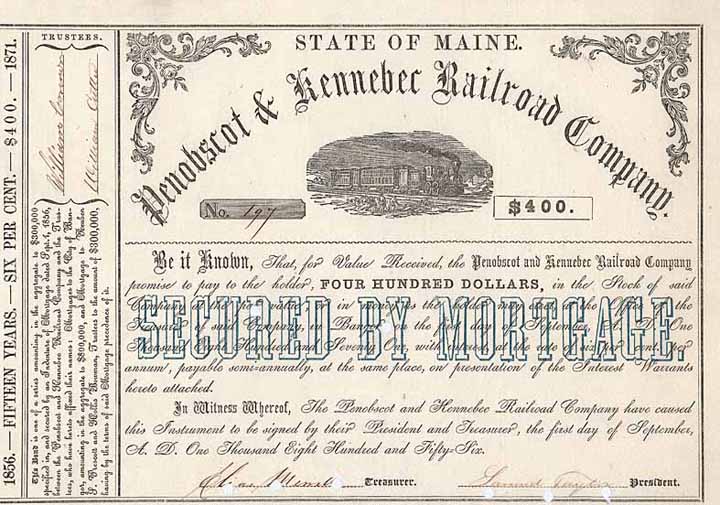 1856. — FIFTEEN YEARS. — SIX PER CENT. — $400. — 1871.
TRUSTEES.
William
William Cutter
This Bond is one of a series amounting in the aggregate to $300,000
specified in, and secured by an Indenture of Mortgage dated Sept. 1, 1856,
between the Penobscot and Kennebec Railroad Company and the Trus-
tees, who have hereto affixed their names; a Mortgage to the City of Ban-
gor, amounting in the aggregate to $800,000, and a Mortgage to
and Trustees to the amount of $300,000,
having by the terms of said Mortgage precedence of it.
STATE OF MAINE.
Penobscot & Kennebec Railroad Company.
No. 197
$400.
Be it Known, That, for Value Received, the Penobscot and Kennebec Railroad Company
promise to pay to the holder, FOUR HUNDRED DOLLARS, in the Stock of said
Company at the par value or in money as the holder may elect at the office of the
SECURED BY MORTGAGE.
Treasurer of said Company, in Bangor, on the first day of September, A. D. One
Thousand Eight Hundred and Seventy One with interest, at the rate of six per cent. per
annum, payable semi-annually, at the same place, on presentation of the Interest Warrants
hereto attached.
In Witness Whereof, The Penobscot and Kennebec Railroad Company have caused
this Instrument to be signed by their President and Treasurer, the first day of September,
A. D. One Thousand Eight Hundred and Fifty-Six.
Treasurer. Samuel Taylor President.